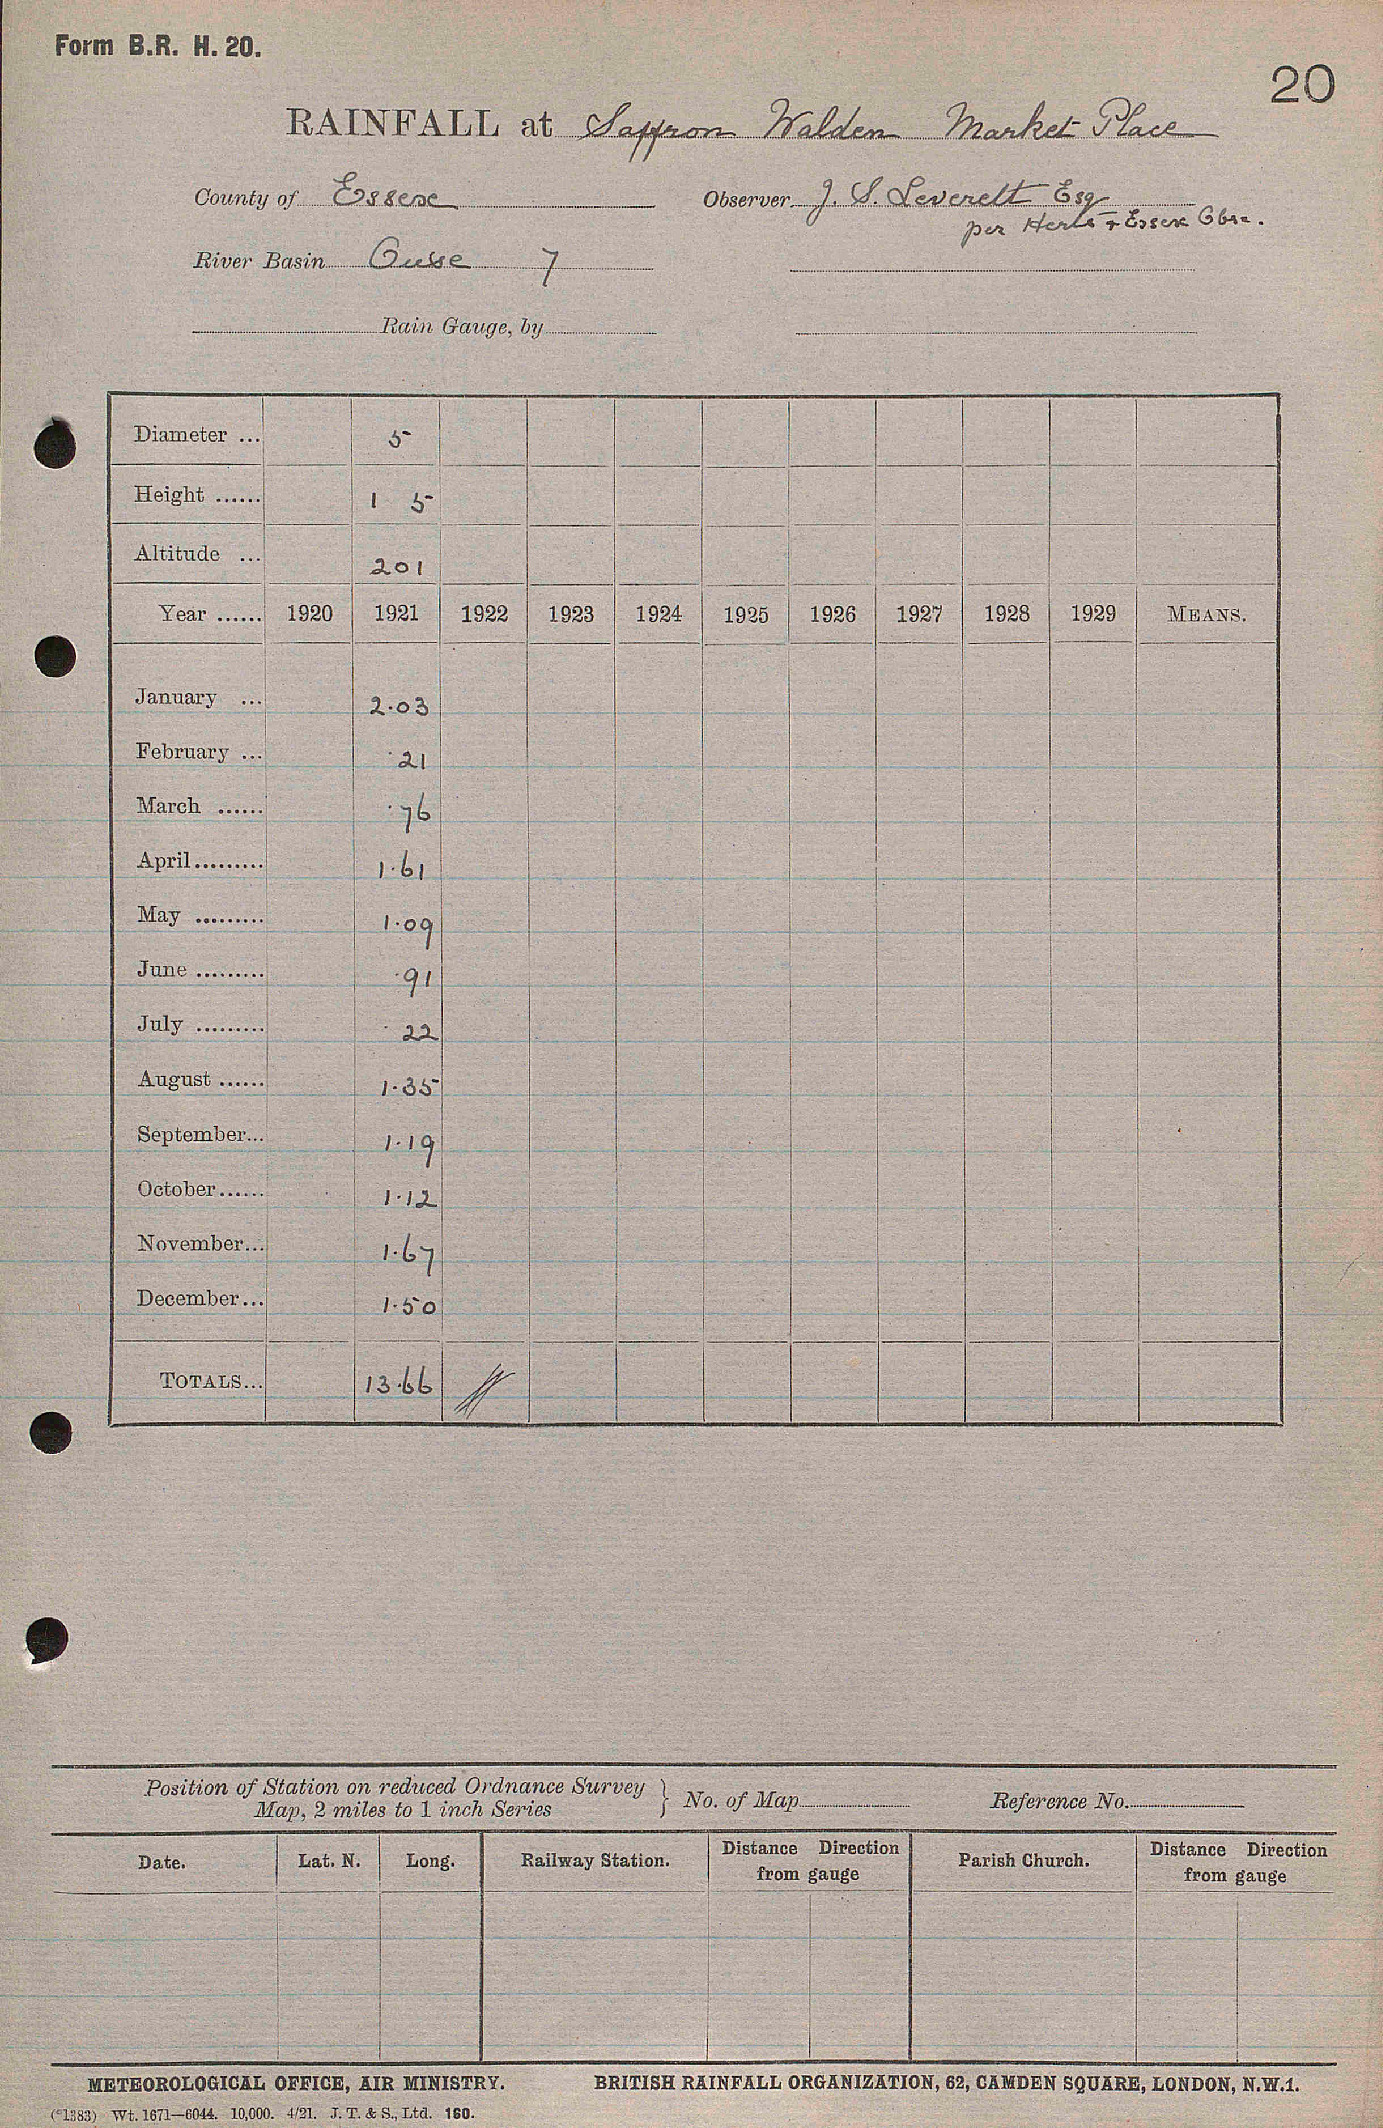 Form B.R. H. 20.
20
RAINFALL at Saffron Walden Market Place
County of Essex Observer J. S. Leverett Esq
per Herts & Essex Obsr.
River Basin Ouse 7
Rain Gauge, by
Diameter ... 5
Height ...... 1 5
Altitude ... 201
Year ...... 1920 1921 1922 1923 1924 1925 1926 1927 1928 1929 MEANS.
January ... 2.03
February ... .21
March ...... .76
April ......... 1.61
May ......... 1.09
June ......... .91
July ......... .22
August ...... 1.35
September... 1.19
October...... 1.12
November... 1.67
December... 1.50
TOTALS... 13.66
Position of Station on reduced Ordnance Survey
Map, 2 miles to 1 inch Series } No. of Map Reference No.
Date. Lat. N. Long. Railway Station. Distance Direction from gauge Parish Church. Distance Direction from gauge
METEOROLOGICAL OFFICE, AIR MINISTRY. BRITISH RAINFALL ORGANIZATION, 62, CAMDEN SQUARE, LONDON, N.W.1.
(*1383) Wt. 1671—6044. 10,000. 4/21. J. T. & S., Ltd. 160.